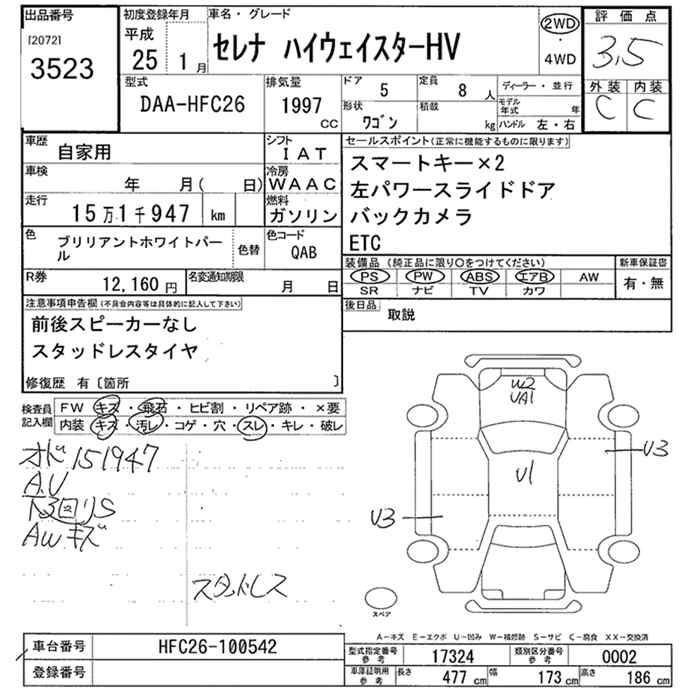 出品番号
[2072]
3523
初度登録年月
平成
25 1月
車名・グレード
セレナ ハイウェイスターHV
2WD
・
4WD
評価点
3.5
外装 内装
C C
型式
DAA-HFC26
排気量
1997
CC
ドア 5
形状
ワゴン
定員 8 人
積載 kg
ディーラー・並行
モデル年式 年
ハンドル 左・右
車歴
自家用
シフト
IAT
車検
年 月( 日)
冷房
WAAC
走行
15万1千947 km
燃料
ガソリン
色
ブリリアントホワイトパール
色替
色コード
QAB
R券
12,160円
名変通知期限
月 日
セールスポイント(正常に機能するものに限ります)
スマートキー×2
左パワースライドドア
バックカメラ
ETC
装備品 (純正品に限り○をつけてください)
PS PW ABS エアB AW
SR ナビ TV カワ
新車保証書
有・無
後日品
取説
注意事項申告欄(不具合内容等は具体的に記入して下さい)
前後スピーカーなし
スタッドレスタイヤ
修復歴 有〔箇所 〕
検査員
記入欄
FW キズ・飛石・ヒビ割・リペア跡・×要
内装 キズ・汚レ・コゲ・穴・スレ・キレ・破レ
オド151947
A.U
AWキズ
スタッドレス
W2
UA1
U1
U3
U3
スペア
A－キズ E－エクボ U－凹み W－補修跡 S－サビ C－腐食 XX－交換済
車台番号 HFC26-100542
登録番号
型式指定番号
参考
17324
類別区分番号
参考
0002
車庫証明用
参考
長さ 477 cm
幅 173 cm
高さ 186 cm